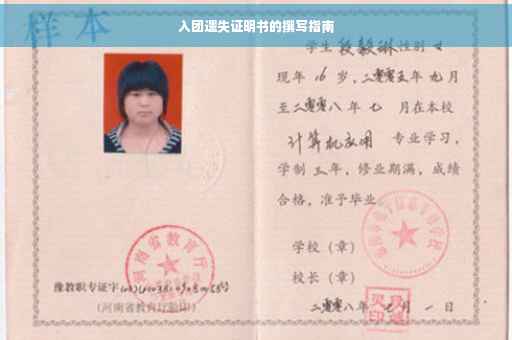 入团遗失证明书的撰写指南
样本
学生段毅琳性别女
现年16岁,二零零五年九月
至二零零八年七月在本校
计算机应用专业学习,
学制三年,修业期满,成绩
合格,准予毕业
学校(章)
校长(章)
二零零八年七月一日
河南省教育厅
豫教职专证字
(河南省教育厅验印)